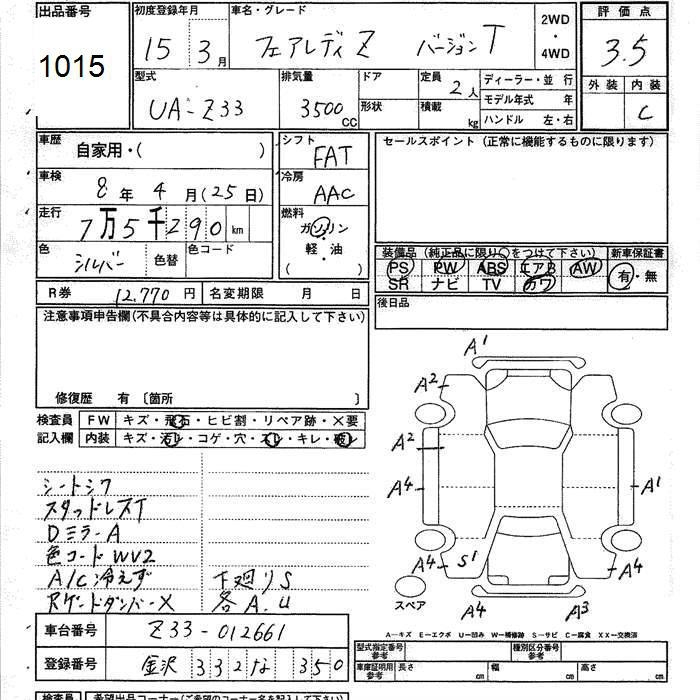 出品番号 初度登録年月 車名・グレード 2WD ・ 4WD 評価点
1015 15年 3月 フェアレディZ バージョンT 3.5
型式 排気量 ドア 定員 2人 ディーラー・並行 外装 内装
UA-Z33 3500cc 形状 積載 kg モデル年式 年 C
ハンドル 左・右
車歴 自家用・( ) シフト FAT セールスポイント(正常に機能するものに限ります)
車検 8年 4月(25日) 冷房 AAC
走行 7万5千290km 燃料 ガソリン・軽油 ( )
色 シルバー 色替 色コード
装備品(純正品に限り○をつけて下さい) 新車保証書
PS PW ABS エアB AW 有・無
SR ナビ TV カワ
R券 12,770円 名変期限 月 日 後日品
注意事項申告欄(不具合内容等は具体的に記入して下さい)
修復歴 有〔箇所 〕
検査員 FW キズ・飛石・ヒビ割・リペア跡・×要
記入欄 内装 キズ・汚レ・コゲ・穴・スレ・キレ・破レ
A1
A2
A2
A4 A1
A4 S1 A4
スペア A4 A3
シートシワ
スタッドレスT
DミラーA
色コードWV2
A/C冷えず 下廻りS
Rゲートダンパー× 各A.U
A—キズ E—エクボ U—凹み W—補修跡 S—サビ C—腐食 XX—交換済
車台番号 Z33-012661
型式指定番号 参考 種別区分番号 参考
登録番号 金沢 332 な 350
車庫証明用 参考 長さ cm 幅 cm 高さ cm
検査員 希望出品コーナー(ご希望のコーナー名を記入下さい)